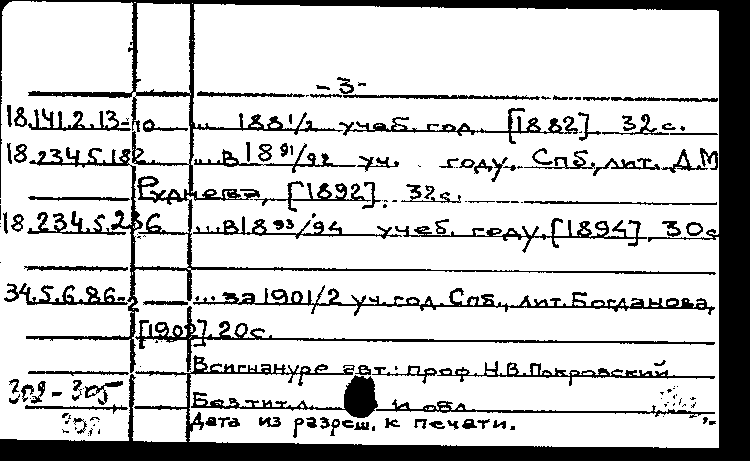 - 3 -
18.141.2.13-10 ... 188 1/2 учеб. год. [1882] 32 с.
18.234.5.182 ... в 18 91/92 уч. году. Спб., лит. Д.М
Руднева, [1892]. 32 с.
18.234.5.236 ... в 18 93/94 учеб. году. [1894] 30 с
34.5.6.86-2 ... за 1901/2 уч. год. Спб., лит. Богданова,
[1902]. 20 с.
В сигнануре авт.: проф. Н.В. Покровский
302 - 305 Без тит. л. и обл.
308 Дата из разреш. к печати.